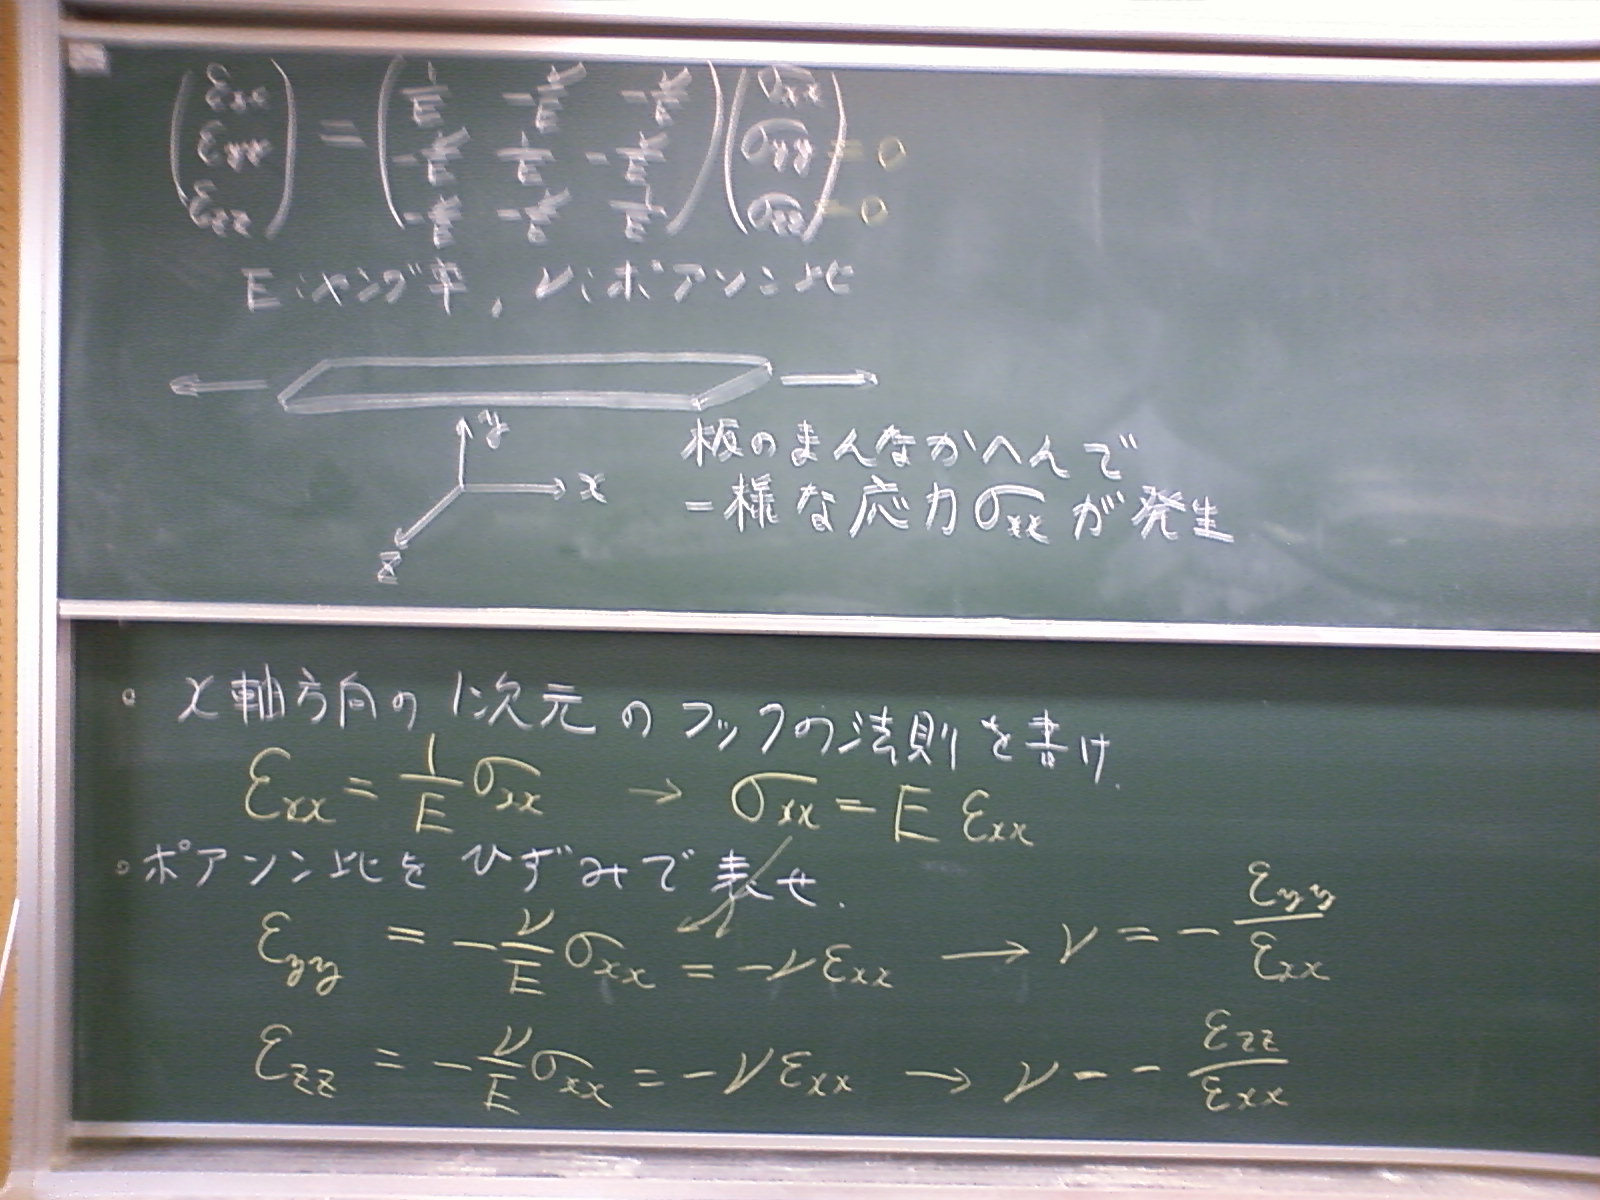 (εxx εyy εzz) = (1/E -ν/E -ν/E
-ν/E 1/E -ν/E
-ν/E -ν/E 1/E) (σxx
σyy = 0
σzz = 0)
E:ヤング率, ν:ポアソン比
y
x
z
板のまんなかへんで
一様な応力σxxが発生
。x軸方向の1次元のフックの法則を書け.
εxx = 1/E σxx → σxx = E εxx
。ポアソン比をひずみで表せ.
εyy = -ν/E σxx = -νεxx → ν = - εyy/εxx
εzz = -ν/E σxx = -νεxx → ν - - εzz/εxx